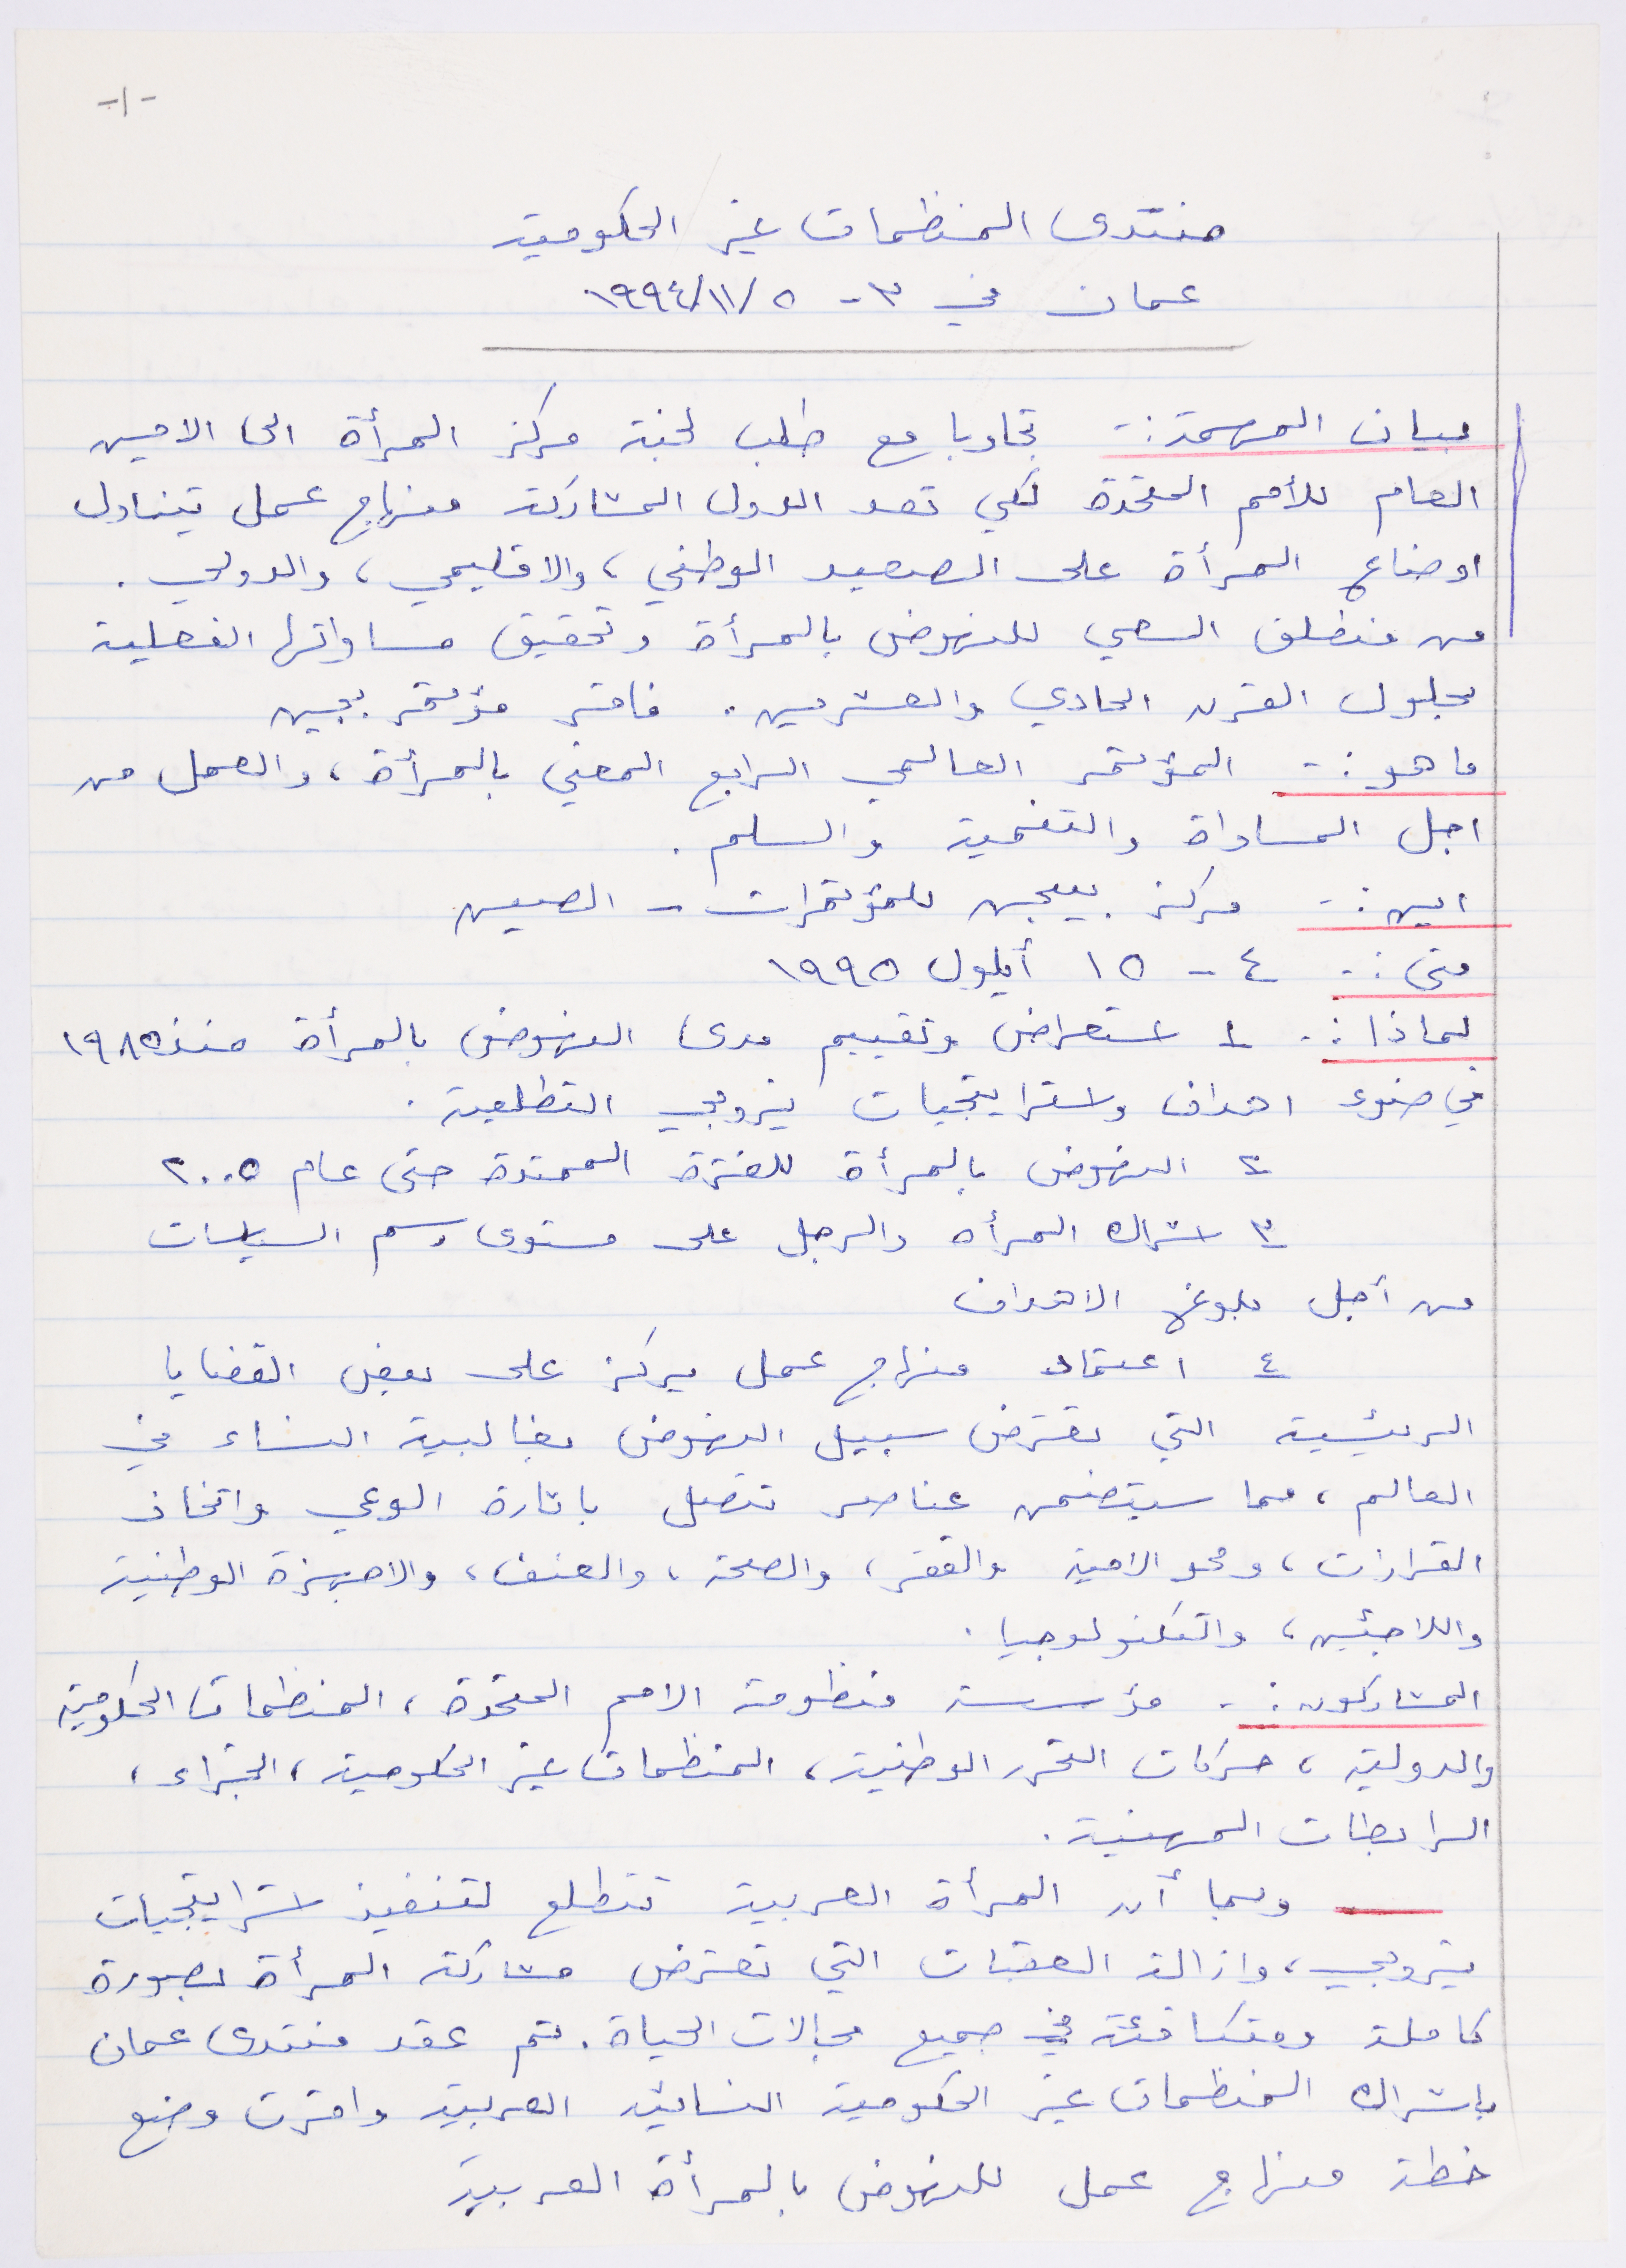 -١-
منتدى المنظمات غير الحكومية
عمان في ٣ - ٥ /١١/ ١٩٩٤
بيان المهمة :- تجاوبا مع طلب لجنة مركز المرأة الى الامين
العام للأمم المتحدة لكي تعد الدول المشاركة منهاج عمل يتناول
اوضاع المرأة على الصعيد الوطني ، والاقليمي ، والدولي .
من منطلق السعي للنهوض بالمرأة وتحقيق مساواتها الفعلية
بحلول القرن الحادي والعشرين . فاقر مؤتمر بجين
ما هو :- المؤتمر العالمي الرابع المعني بالمرأة ، والعمل من
اجل المساواة والتنمية والسلم .
اين :- مركز بييجين للمؤتمرات - الصين
متى :- ٤ - ١٥ أيلول ١٩٩٥
لماذا :- ١ استعراض وتقييم مدى النهوض بالمرأة منذ ١٩٨٥
في ضوء اهداف واستراتيجيات نيروبي التطلعية .
٢ النهوض بالمرأة للفترة الممتدة حتى عام ٢٠٠٥
٣ اشراك المرأه والرجل على مستوى رسم السياسات
من أجل بلوغ الاهداف
٤ اعتماد منهاج عمل يركز على بعض القضايا
الرئيسية التي تعترض سبيل النهوض بغالبية النساء في
العالم ، مما سيتضمن عناصر تتصل باثارة الوعي واتخاذ
القرارات ، ومحو الامية والفقر ، والصحة ، والعنف ، والاجهزة الوطنية
واللاجئين ، والتكنولوجيا .
المشاركون :- مؤسسة منظومة الامم المتحدة ، المنظمات الحكومية
والدولية ، حركات التحرر الوطنية ، المنظمات غير الحكومية ، الخبراء ،
الرابطات المهنية .
وبما أن المرأة العربية تتطلع لتنفيذ استراتيجيات
نيروبي ، وازالة العقبات التي تعترض مشاركة المرأة بصورة
كاملة ومتكافئة في جميع مجالات الحياة . تم عقد منتدى عمان
باشراك المنظمات غير الحكومية النسائية العربية واقرت وضع
خطة منهاج عمل للنهوض بالمرأة العربية